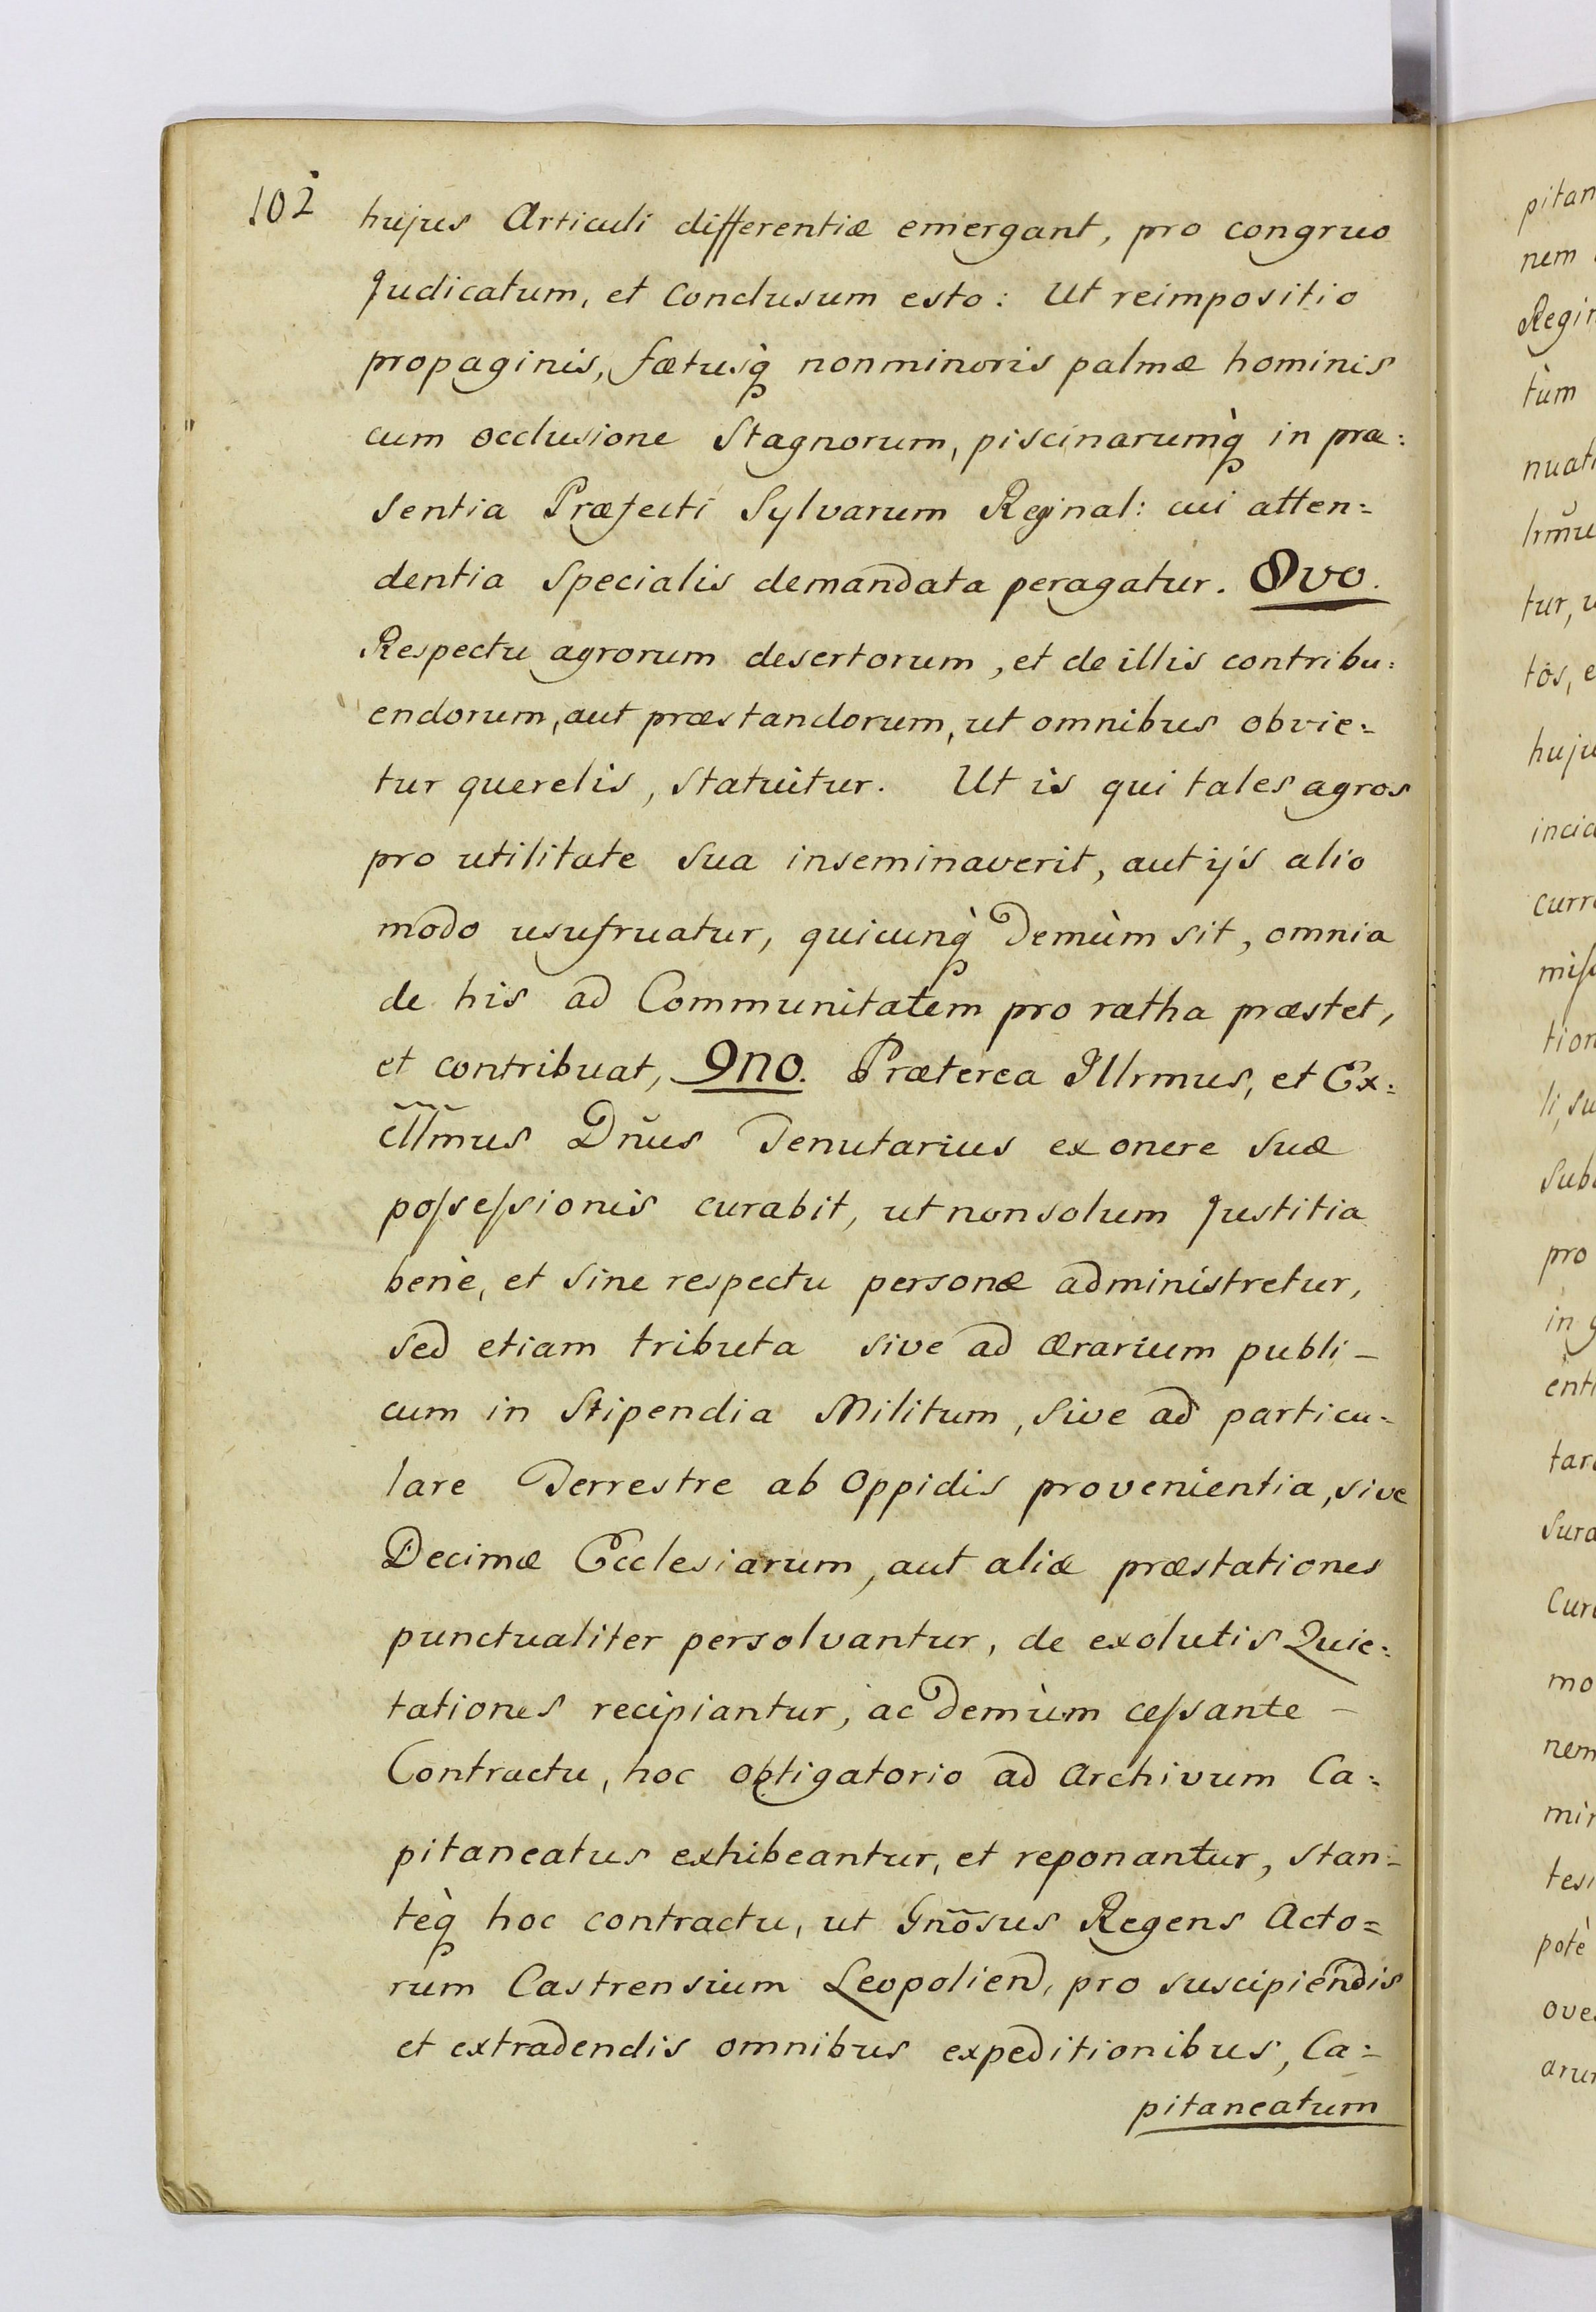 102
hujus Articuli differentiæ emergant, pro congruo
Judicatum, et Conclusum esto: Ut reimpositio
propaginis, fætusq̀ nonminoris palmæ hominis
cum occlusione Stagnorum, piscinarumq̀ in præ:
sentia Præfecti Sylvarum Reginal: cui atten=
dentia specialis demandata peragatur. 8vo.
Respectu agrorum desertorum, et de illis contribu:
endorum, aut præstandorum, ut omnibus obvie=
tur querelis, statuitur. Ut is qui tales agros
pro utilitate sua inseminaverit, aut ijs alio
modo usufruatur, quicunq̀ demùm sit, omnia
de his ad Communitatem pro ratha præstet,
et contribuat, 9no. Præterea Illrmus, et Ex:
cllmus Dñus Tenutarius ex onere suæ
poſseſsionis curabit, ut nonsolum Justitia
benè, et sine respectu personæ administretur,
sed etiam tributa sive ad ærarium publi-
cum in Stipendia Militum, sive ad particu-
lare Terrestre ab Oppidis provenientia, sive
Decimæ Ecclesiarum, aut aliæ præstationes
punctualiter persolvantur, de exolutis Quie:
tationes recipiantur, ac demùm ceſsante -
Contractu, hoc obligatorio ad Archivum Ca:
pitaneatus exhibeantur, et reponantur, stan=
teq̀ hoc contractu, ut Gñõsus Regens Acto=
rum Castrensium Leopolien, pro suscipiendis
et extradendis omnibus expeditionibus, Ca=
pitaneatum
pitan
nem
Regin
tùm
nuati
tur,
tôs, e
huju
curr
tion
li, su
pro
in g
enti
Cur
mo
nem
potè